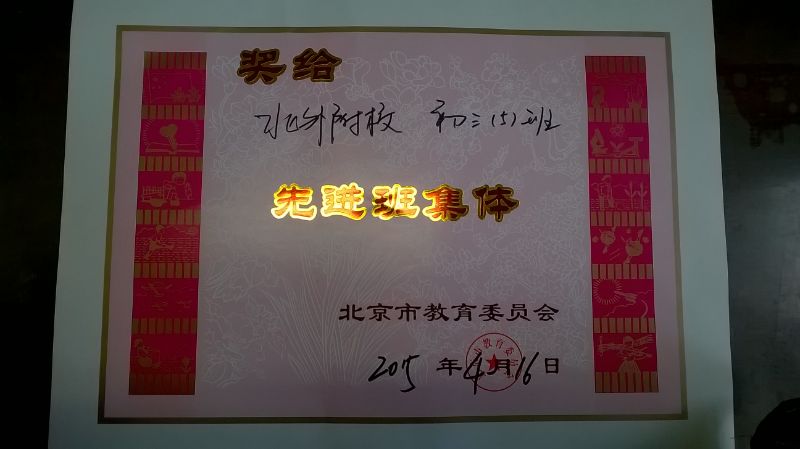 奖给
北外附校 初三(5)班
先进班集体
北京市教育委员会
2015年4月16日